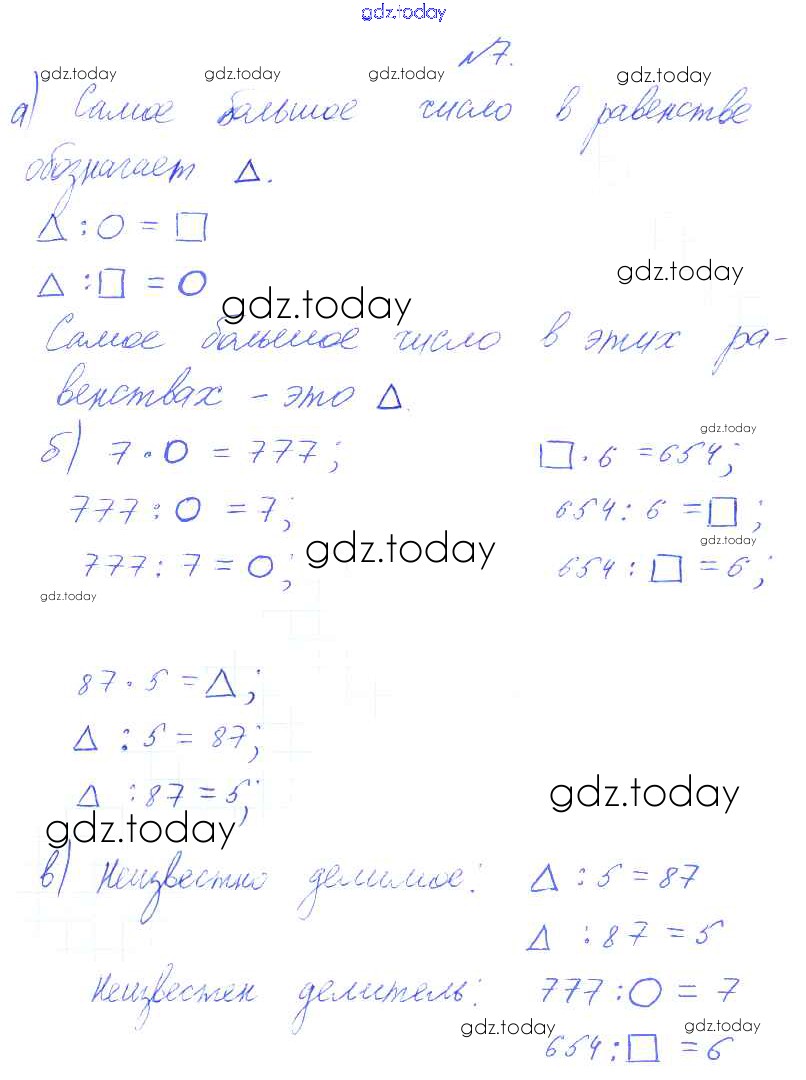 gdz.today
№7.
gdz.today gdz.today gdz.today gdz.today
а) Самое большое число в равенстве
обозначает △.
△ : ○ = □
gdz.today
△ : □ = ○
gdz.today
Самое большое число в этих ра-
венствах – это △.
gdz.today
б) 7 · ○ = 777; □ · 6 = 654;
777 : ○ = 7; 654 : 6 = □;
gdz.today gdz.today
777 : 7 = ○; 654 : □ = 6;
gdz.today
87 · 5 = △;
△ : 5 = 87;
△ : 87 = 5;
gdz.today
gdz.today
в) Неизвестно делимое: △ : 5 = 87
△ : 87 = 5
Неизвестен делитель: 777 : ○ = 7
gdz.today gdz.today
654 : □ = 6